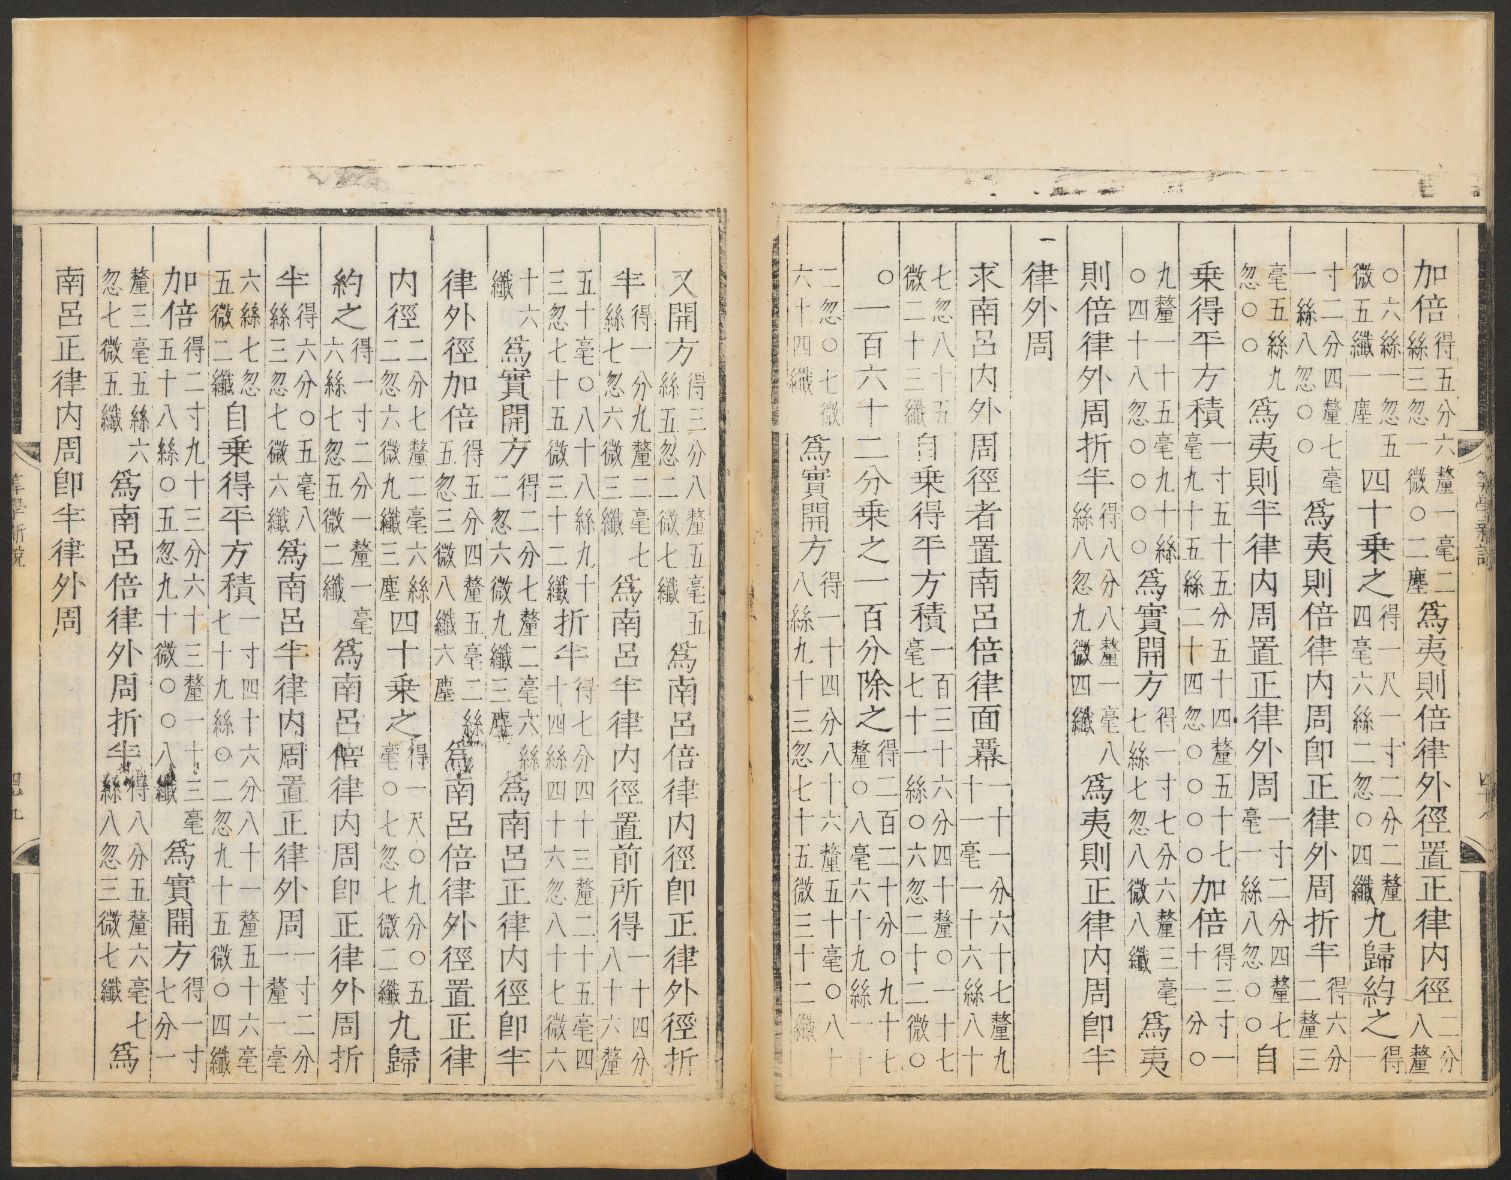 加倍得五分六釐一毫二絲三忽一微〇二塵為夷則倍律外徑置正律內徑二分八釐
〇六絲一忽五微五纖一塵四十乘之得一尺一寸二分二釐四毫六絲二忽〇四纖九歸約之得一
寸二分四釐七毫一絲八忽〇〇為夷則倍律內周卽正律外周折半得六分二釐三
毫五絲九忽〇〇為夷則半律內周置正律外周一寸二分四釐七毫一絲八忽〇〇自
乘得平方積一寸五十五分五十四釐五十七毫九十五絲二十四忽〇〇〇〇加倍得三寸一十一分〇
九釐一十五毫九十絲〇四十八忽〇〇〇〇為實開方得一寸七分六釐三毫七絲七忽八微八纖為夷
則倍律外周折半得八分八釐一毫八絲八忽九微四纖為夷則正律內周卽半
律外周
求南呂內外周徑者置南呂倍律面羃一十一分六十七釐九十一毫一十六絲八十
七忽八十五微二十三纖自乘得平方積一百三十六分四十釐〇一十七毫七十一絲〇六忽二十二微〇
〇一百六十二分乘之一百分除之得二百二十分〇九十七釐〇八毫六十九絲一十
二忽〇七微六十四纖為實開方得一十四分八十六釐五十毫〇八十八絲九十三忽七十五微三十二纖
又開方得三分八釐五毫五絲五忽二微七纖為南呂倍律內徑卽正律外徑折
半得一分九釐二毫七絲七忽六微三纖為南呂半律內徑置前所得一十四分八十六釐
五十毫〇八十八絲九十三忽七十五微三十二纖折半得七分四十三釐二十五毫四十四絲四十六忽八十七微六
十六纖為實開方得二分七釐二毫六絲二忽六微九纖三塵為南呂正律內徑卽半
律外徑加倍得五分四釐五毫二絲五忽三微八纖六塵為南呂倍律外徑置正律
內徑二分七釐二毫六絲二忽六微九纖三塵四十乘之得一尺〇九分〇五毫〇七忽七微二纖九歸
約之得一寸二分一釐一毫六絲七忽五微二纖為南呂倍律內周卽正律外周折
半得六分〇五毫八絲三忽七微六纖為南呂半律內周置正律外周一寸二分一釐一毫
六絲七忽五微二纖自乘得平方積一寸四十六分八十一釐五十六毫七十九絲〇二忽九十五微〇四纖
加倍得二寸九十三分六十三釐一十三毫五十八絲〇五忽九十微〇〇八纖為實開方得一寸七分一
釐三毫五絲六忽七微五纖為南呂倍律外周折半得八分五釐六毫七絲八忽三微七纖為
南呂正律內周卽半律外周